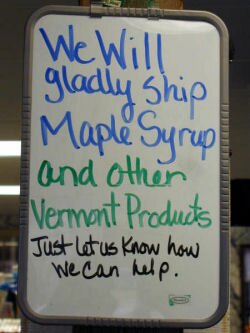 We Will
gladly Ship
Maple Syrup
and other
Vermont Products
Just let us Know how
We Can help.